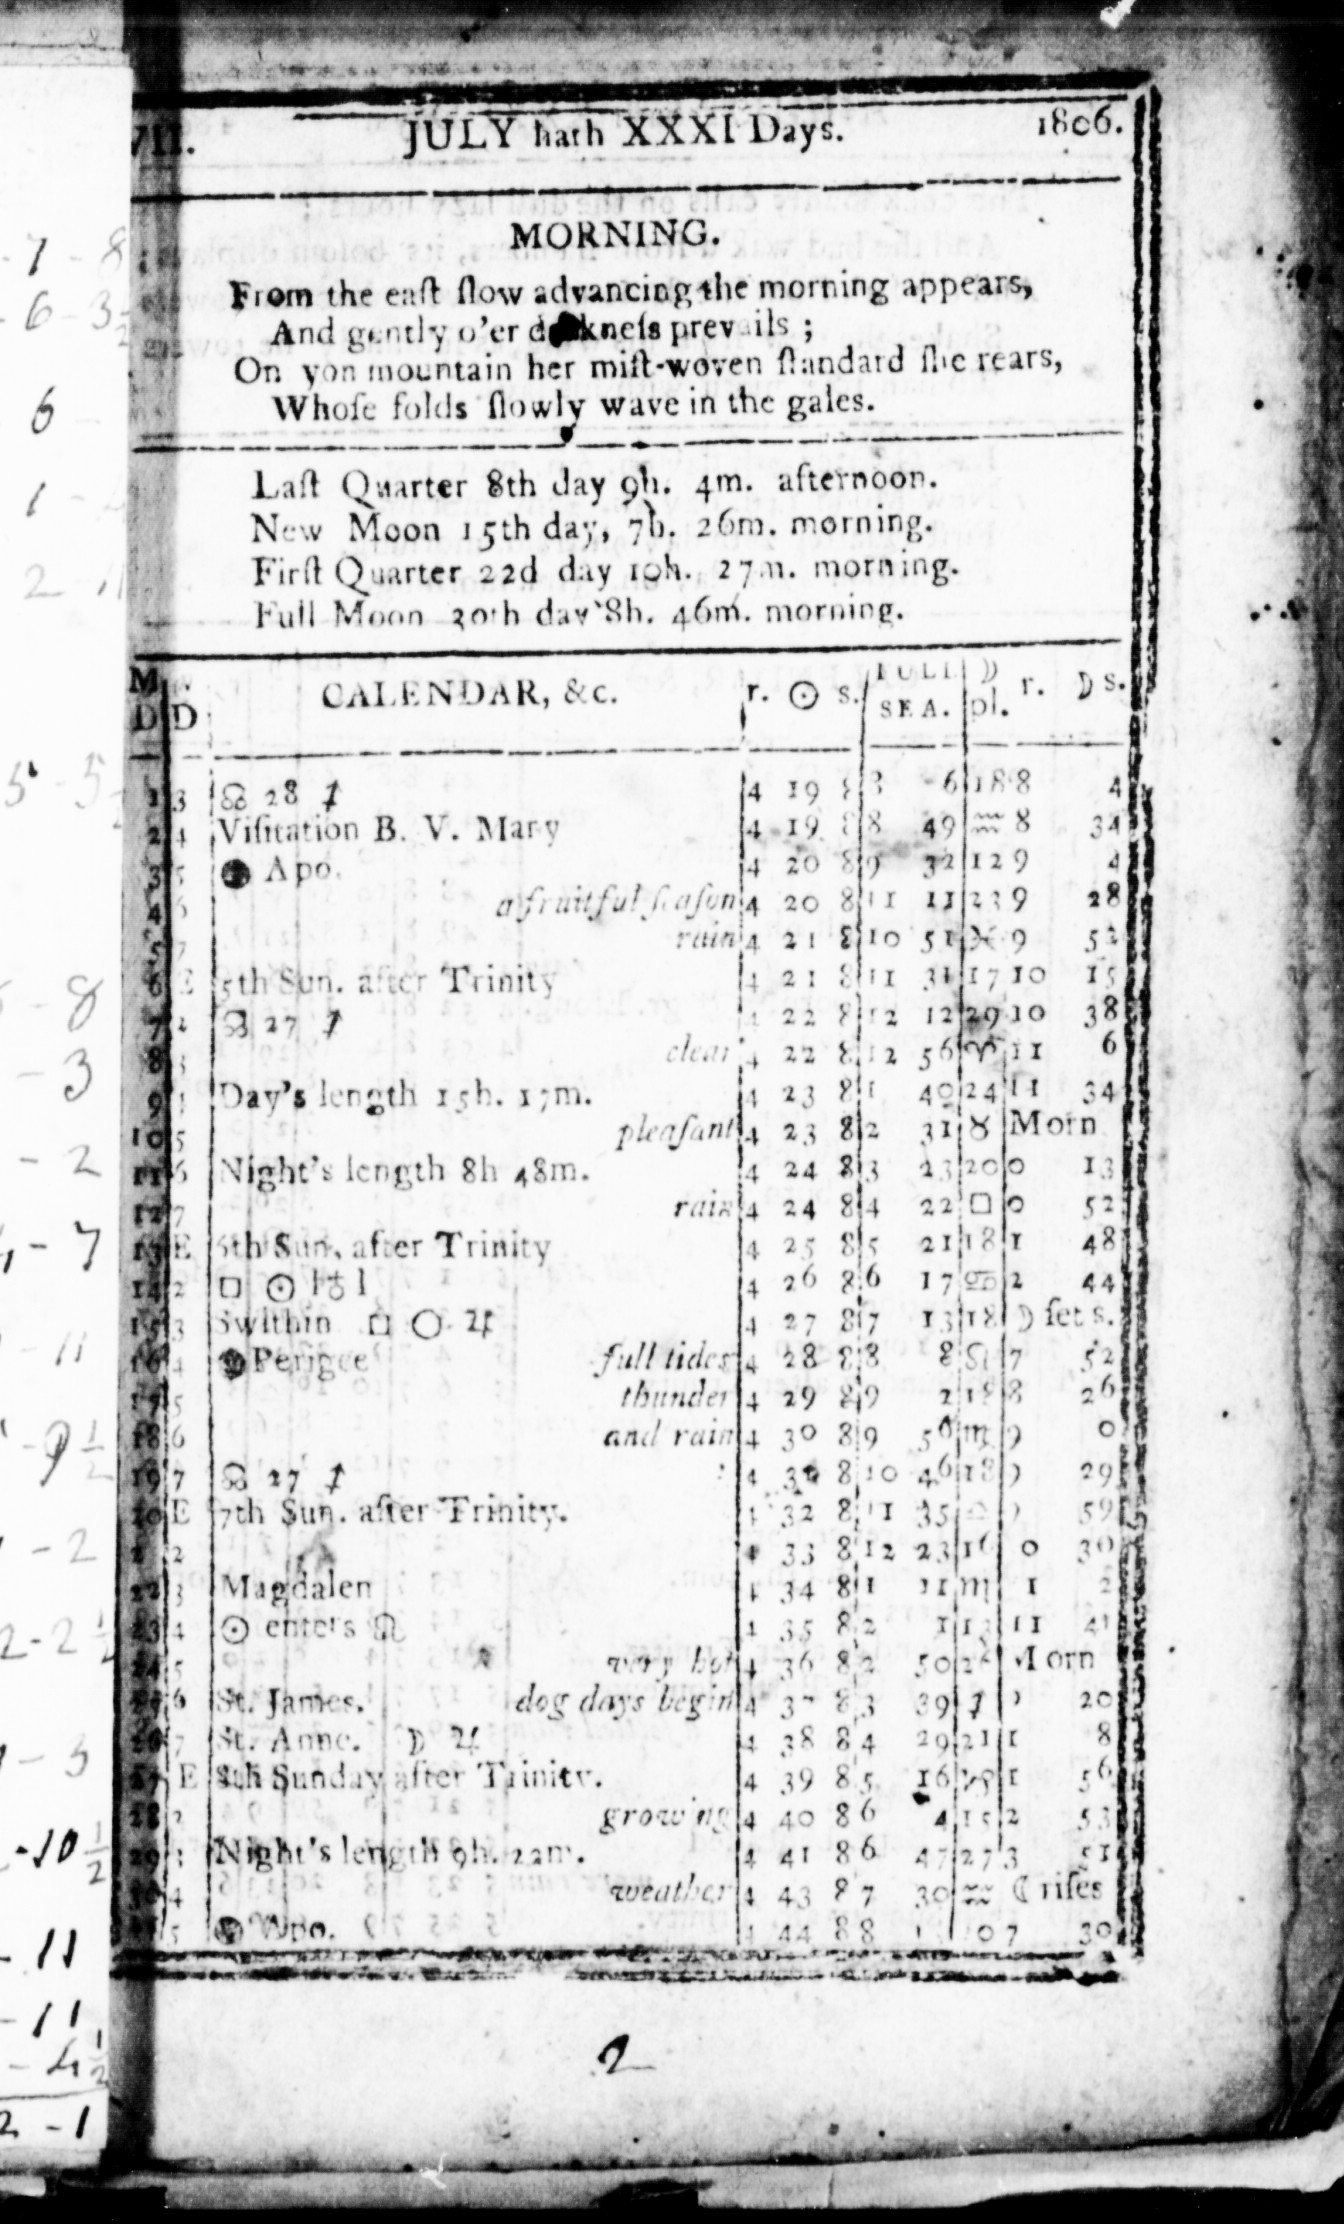 VII. JULY hath XXXI Days. 1806.
MORNING.
From the eaſt ſlow advancing the morning appears,
And gently o'er darkneſs prevails ;
On yon mountain her miſt-woven ſtandard ſhe rears,
Whoſe folds ſlowly wave in the gales.
Laſt Quarter 8th day 9h. 4m. afternoon.
New Moon 15th day, 7h. 26m. morning.
Firſt Quarter 22d day 10h. 27m. morning.
Full Moon 30th day 8h. 46m. morning.
M D W D CALENDAR, &c. r. ☉ s. FULL SEA. ☽ pl. r. ☽ s.
1 3 ☊ 28 ♐ 4 19 8 8 6 18 8 4
2 4 Viſitation B. V. Mary 4 19 8 8 49 ♒ 8 34
3 5 Apo. 4 20 8 9 32 12 9 4
4 6 a fruitful ſeaſon 4 20 8 11 11 23 9 28
5 7 rain 4 21 8 10 51 ♓ 9 52
6 E 5th Sun. after Trinity 4 21 8 11 31 17 10 15
7 2 ☊ 27 ♐ 4 22 8 12 12 29 10 38
8 3 clear 4 22 8 12 56 ♈ 11 6
9 4 Day's length 15h. 17m. 4 23 8 1 40 24 11 34
10 5 pleaſant 4 23 8 2 31 ♉ Morn
11 6 Night's length 8h 48m. 4 24 8 3 23 20 0 13
12 7 rain 4 24 8 4 22 □ 0 52
13 E 6th Sun. after Trinity 4 25 8 5 21 18 1 48
14 2 □ ☉ ♅ 4 26 8 6 17 ♋ 2 44
15 3 Swithin □ ☉ ♃ 4 27 8 7 13 18 ☽ ſets.
16 4 Perigee full tides 4 28 8 8 8 ♌ 7 52
17 5 thunder 4 29 8 9 2 18 8 26
18 6 and rain 4 30 8 9 56 ♍ 9 0
19 7 ☊ 27 ♐ 4 31 8 10 46 18 9 29
20 E 7th Sun. after Trinity. 4 32 8 11 35 ♎ 9 59
2 2 33 8 12 23 16 0 30
22 3 Magdalen 4 34 8 1 11 ♏ 1 2
23 4 ☉ enters ♌ 4 35 8 2 1 13 11 41
24 5 very hot 4 36 8 2 50 26 Morn
25 6 St. James. dog days begin 4 37 8 3 39 ♐ 20
26 7 St. Anne. ☽ ♃ 4 38 8 4 29 21 1 8
27 E 8th Sunday after Trinity. 4 39 8 5 16 ♑ 1 56
28 2 growing 4 40 8 6 4 15 2 53
29 3 Night's length 9h. 22m. 4 41 8 6 47 27 3 51
30 4 weather 4 43 8 7 30 ♒ ☾ riſes
5 Apo. 4 44 8 8 10 7 30
2
- 7 - 8
- 6 - 3
6 -
1 -
2 - 11
5 - 5
- 8
- 3
- 2
- 7
- 11
- 9 1/2
- 2
2 - 2 1/2
- 3
- 10 1/2
- 11
- 11
- 4 1/2
2 - 1